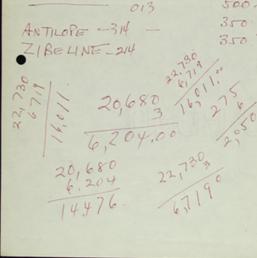 013
500-
ANTILOPE - 314 -
350
ZIBELINE - 214
350
22,730
6719
16,011
20,680
3
6,204.00
22,730
6719
16,011.00
275
6
2,050
20,680
6.204
14,476.
22,730
3
6,7190